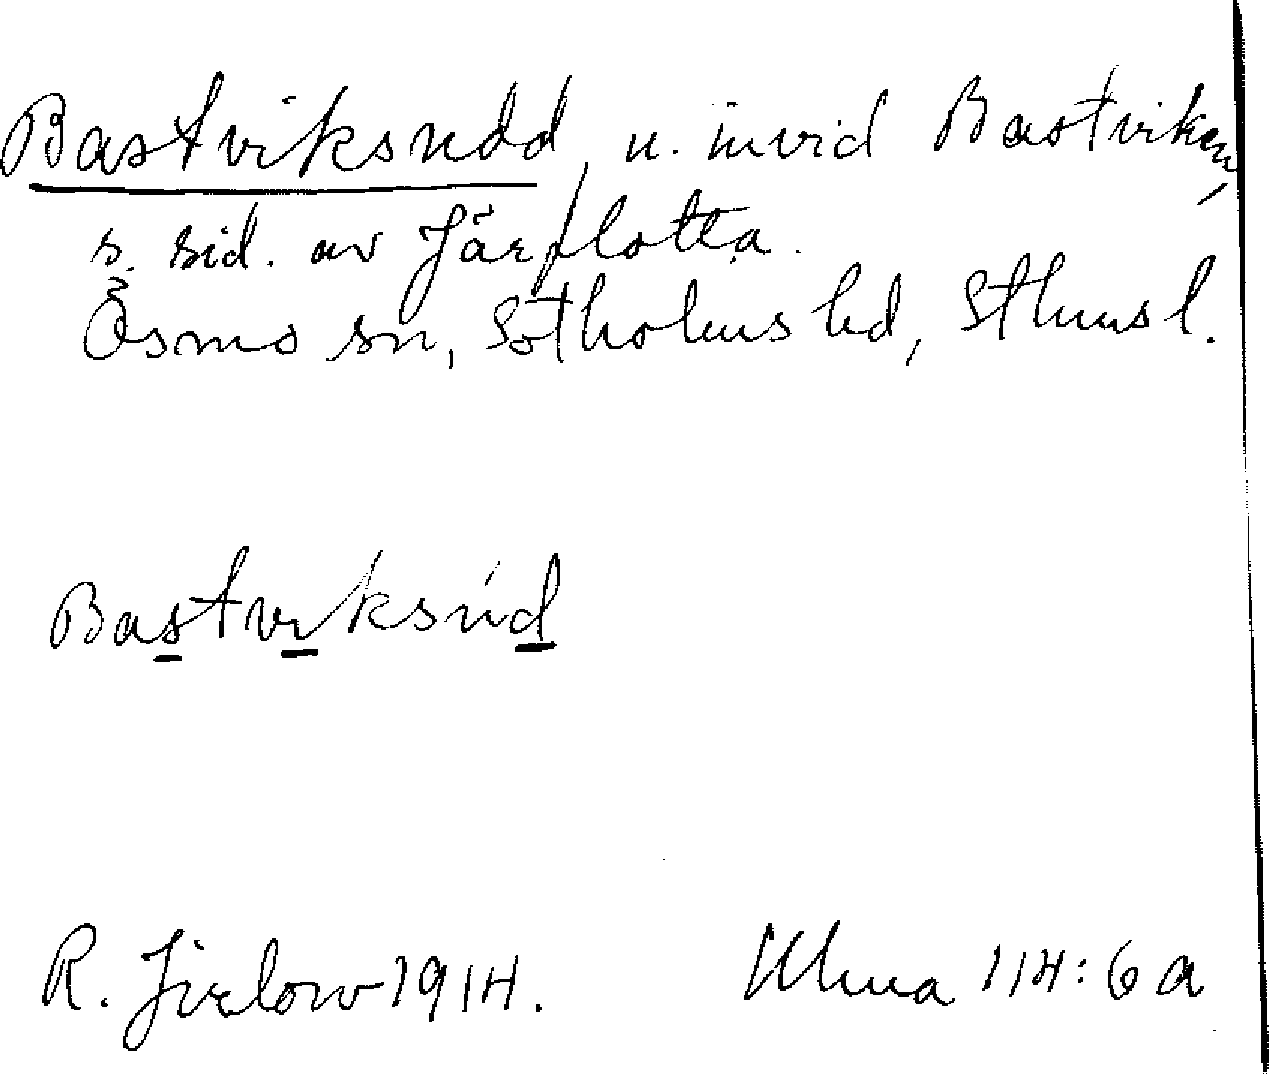 Bastviksudd, u. invid Bastviken,
s. sid. av Järflotta.
Ösmo sn, Sotholms hd, Sthms l.
Bastviksúd
R. Jirlow 1914. Ulma 114:6a